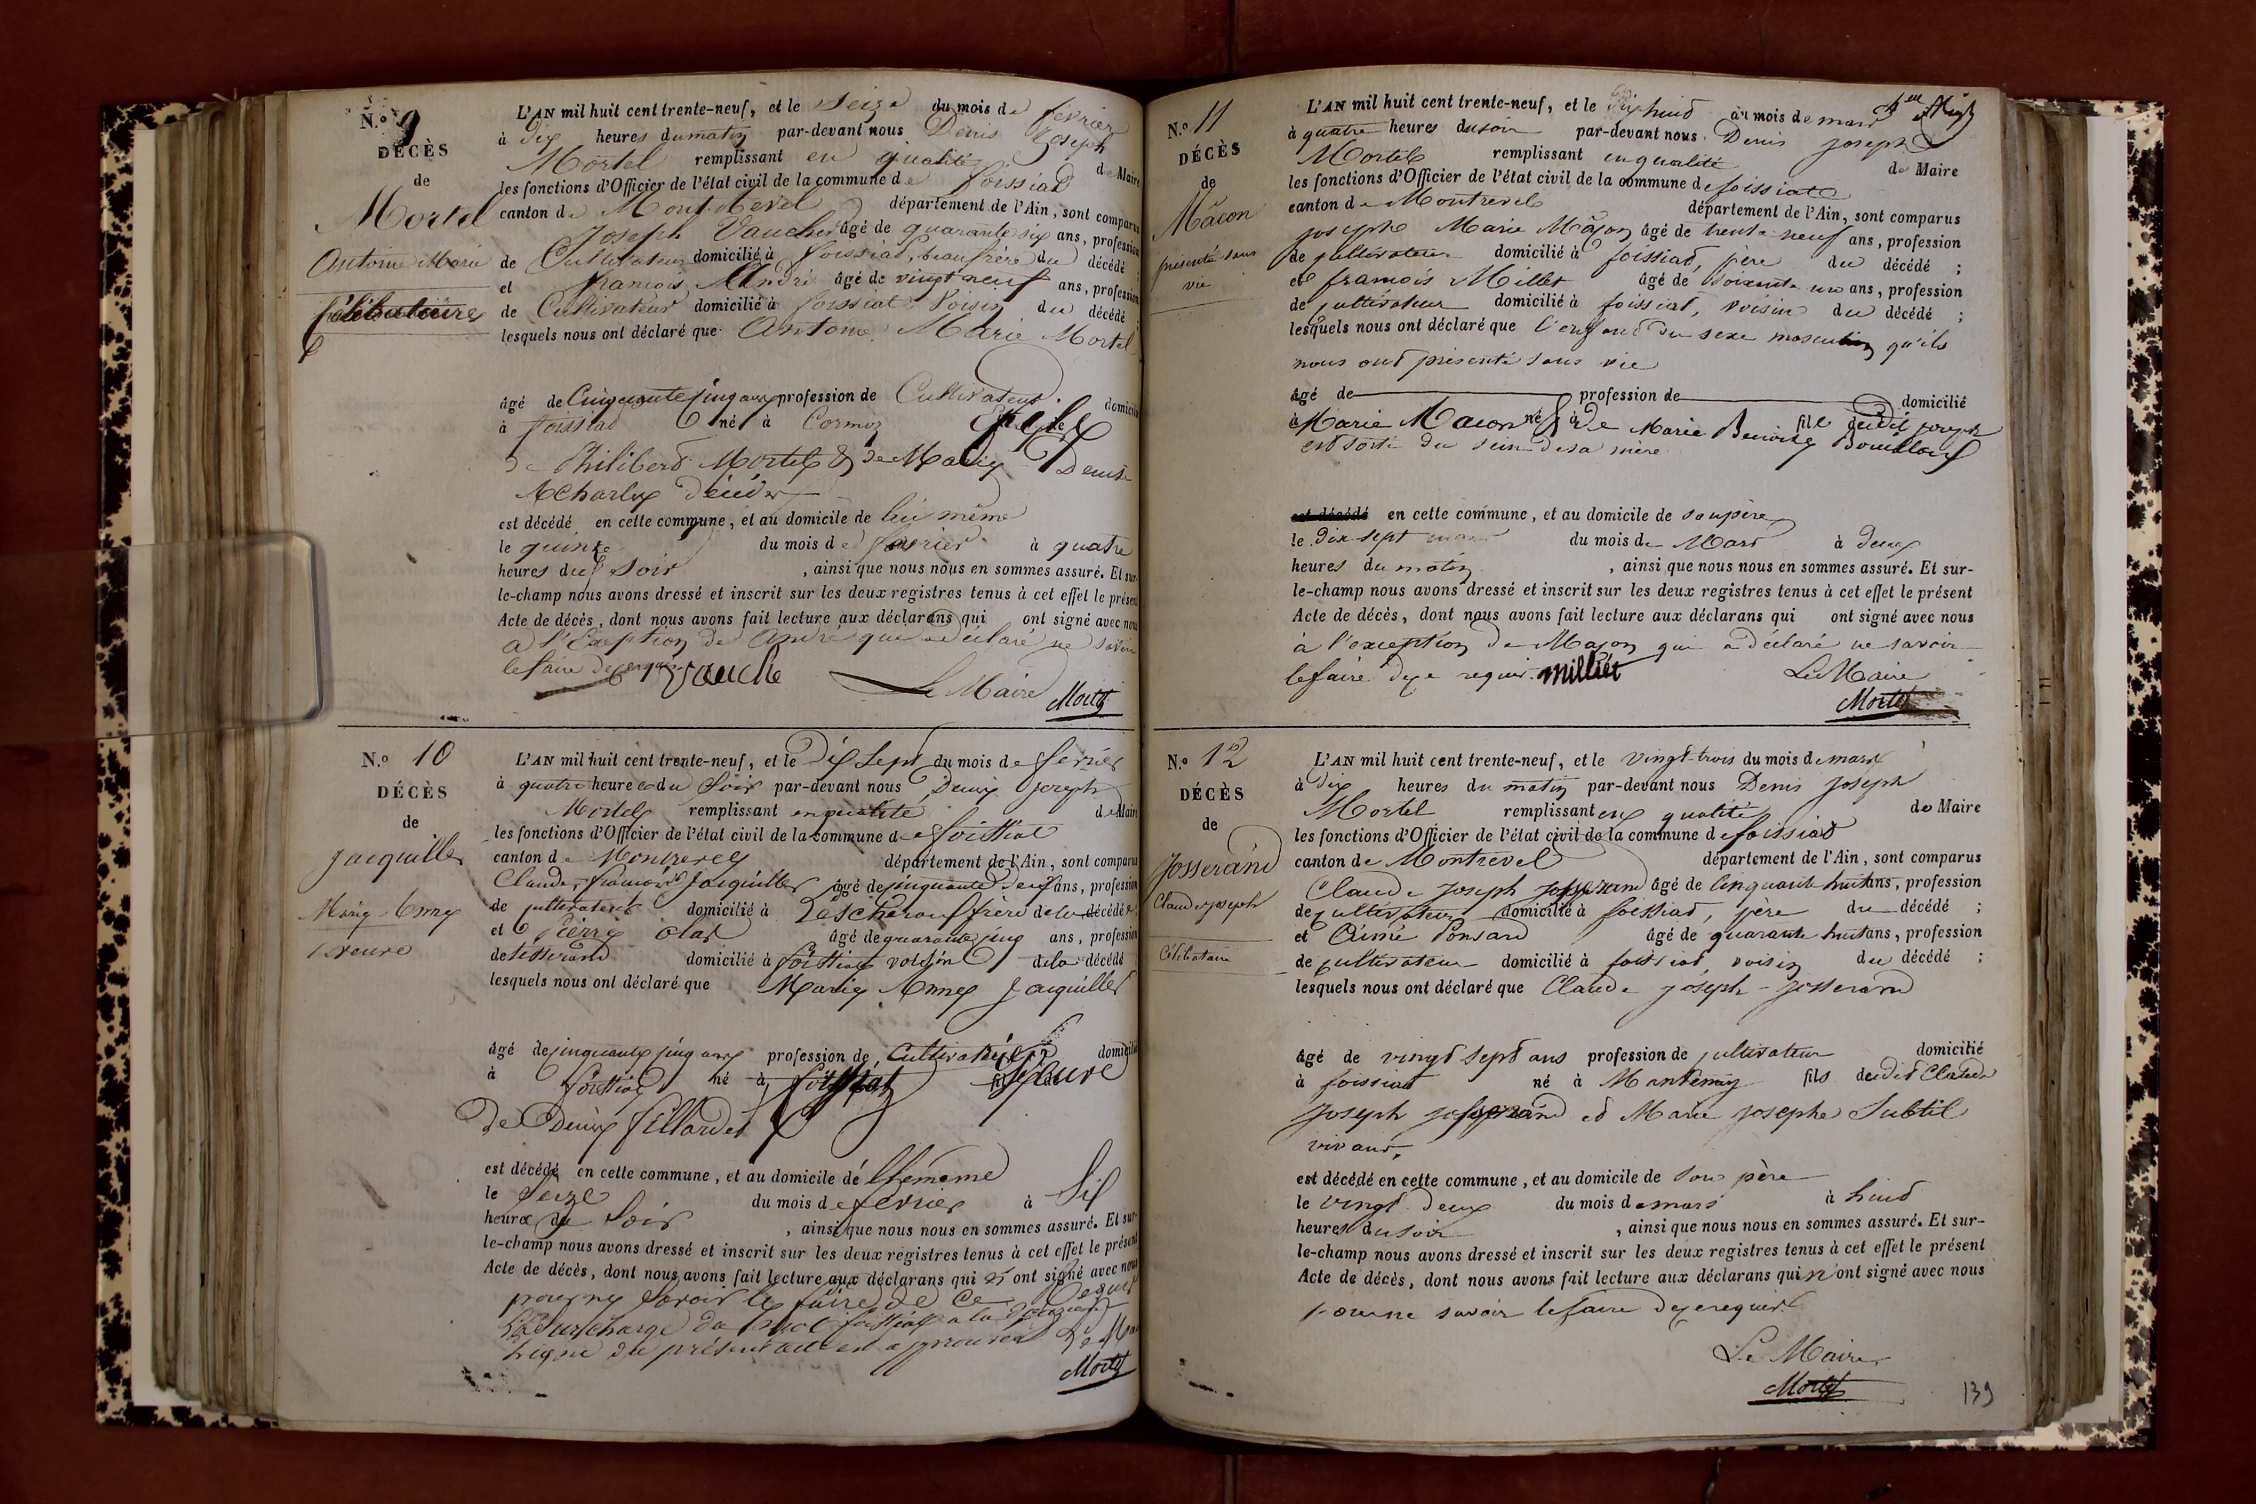 N.º 9
DÉCÈS
de
Mortel
Antoine Marie
Célibataire
L'AN mil huit cent trente-neuf, et le seize du mois de février
à dix heures du matin par-devant nous Denis Joseph
Mortel remplissant en qualité de Maire
les fonctions d'Officier de l'état civil de la commune de foissiat
canton de Montrevel département de l'Ain, sont comparus
Joseph Vaucher âgé de quarante six ans, profession
de Cultivateur domicilié à foissiat, beaufrère du décédé ;
et françois André âgé de vingt neuf ans, profession
de Cultivateur domicilié à foissiat Voisin du décédé ;
lesquels nous ont déclaré que Antoine Marie Mortel
âgé de Cinquante cinq ans profession de Cultivateur domicilié
à foissiat né à Cormoz
de Philibert Mortel & de Marie Denise
décédés
est décédé en cette commune, et au domicile de lui même
le quinze du mois de février à quatre
heures du soir, ainsi que nous nous en sommes assuré. Et sur-
le-champ nous avons dressé et inscrit sur les deux registres tenus à cet effet le présent
Acte de décès, dont nous avons fait lecture aux déclarans qui ont signé avec nous
à l'Exception de André qui a déclaré ne savoir
le faire de ce requis Vauche Le Maire
Mortel
N.º 10
DÉCÈS
de
Jacquiller
Marie Anne
veuve
L'AN mil huit cent trente-neuf, et le Dix Sept du mois de février
à quatre heures du Soir par-devant nous Denis Joseph
Mortel remplissant en qualité de Maire
les fonctions d'Officier de l'état civil de la commune de foissiat
canton de Montrevel département de l'Ain, sont comparus
Claude françois Jacquiller âgé de cinquante neuf ans, profession
de cultivateur domicilié à Lescheroux frère de la décédée ;
et Pierre âgé de quarante cinq ans, profession
de tisserand domicilié à foissiat voisin de la décédé
lesquels nous ont déclaré que Marie Anne Jacquiller
âgé de cinquante cinq ans profession de Cultivatrice domicilié
à foissiat né à foissiat veuve
De Denis fillardet
est décédé en cette commune, et au domicile de
le seize du mois de février à Six
heures du Soir, ainsi que nous nous en sommes assuré. Et sur-
le-champ nous avons dressé et inscrit sur les deux registres tenus à cet effet le présent
Acte de décès, dont nous avons fait lecture aux déclarans qui n'ont signé avec nous
pour ne savoir le faire de ce Requis
La surcharge du mot foissiat a la
Ligne du présent acte est approuvée Le Maire
Mortel
N.º 11
DÉCÈS
de
Mâcon
présenté sans
vie
L'AN mil huit cent trente-neuf, et le Dix huit du mois de mars
à quatre heures du soir par-devant nous Denis Joseph
Mortel remplissant en qualité de Maire
les fonctions d'Officier de l'état civil de la commune de foissiat
canton de Montrevel département de l'Ain, sont comparus
joseph Marie Mâcon âgé de trente neuf ans, profession
de cultivateur domicilié à foissiat, père du décédé ;
et françois Millet âgé de soixante un ans, profession
de cultivateur domicilié à foissiat, voisin du décédé ;
lesquels nous ont déclaré que l'enfant du sexe masculin qu'ils
nous ont présenté sans vie
âgé de profession de domicilié
à né à fils dudit joseph
Marie Macon & de Marie Benoite
est sorti du sein de sa mère
est décédé en cette commune, et au domicile de son père
le dix sept du mois de Mars à deux
heures du matin, ainsi que nous nous en sommes assuré. Et sur-
le-champ nous avons dressé et inscrit sur les deux registres tenus à cet effet le présent
Acte de décès, dont nous avons fait lecture aux déclarans qui ont signé avec nous
à l'exception de Maçon qui a déclaré ne savoir
le faire de ce requis. Milliet Le Maire
Mortel
N.º 12
DÉCÈS
de
Josserand
Claude joseph
Célibataire
L'AN mil huit cent trente-neuf, et le vingt-trois du mois de mars
à dix heures du matin par-devant nous Denis Joseph
Mortel remplissant en qualité de Maire
les fonctions d'Officier de l'état civil de la commune de foissiat
canton de Montrevel département de l'Ain, sont comparus
Claude Joseph Josserand âgé de Cinquante huit ans, profession
de cultivateur domicilié à foissiat, père du décédé ;
et Aimé Ponsard âgé de quarante huit ans, profession
de cultivateur domicilié à foissiat, voisin du décédé ;
lesquels nous ont déclaré que Claude joseph Josserand
âgé de vingt sept ans profession de cultivateur domicilié
à foissiat né à Mantenay fils dudit Claude
Joseph Josserand et Marie josephe Subtil
vivans,
est décédé en cette commune, et au domicile de son père
le vingt deux du mois de mars à huit
heures du soir, ainsi que nous nous en sommes assuré. Et sur-
le-champ nous avons dressé et inscrit sur les deux registres tenus à cet effet le présent
Acte de décès, dont nous avons fait lecture aux déclarans qui n'ont signé avec nous
pour ne savoir le faire de ce requis.
Le Maire
Mortel
139